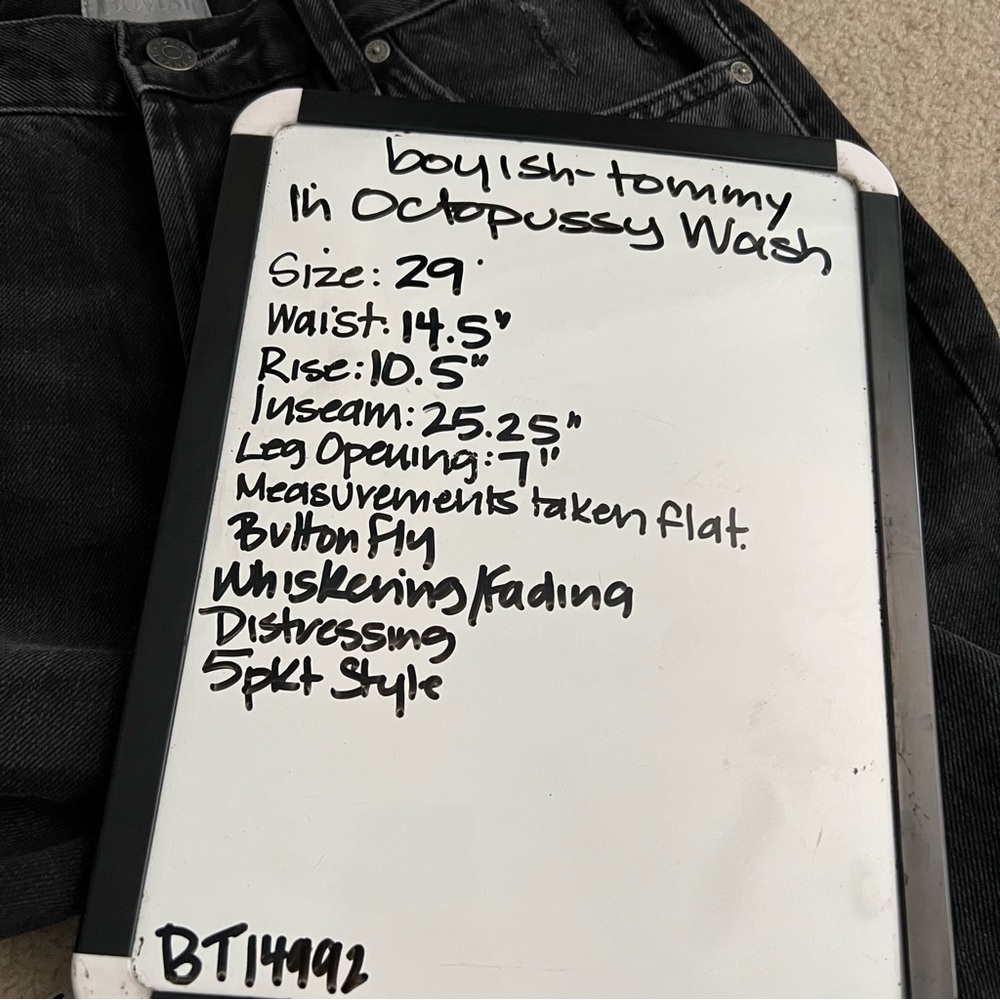 boyish-tommy
in Octopussy Wash
Size: 29
Waist: 14.5"
Rise: 10.5"
Inseam: 25.25"
Leg Opening: 7"
Measurements taken flat.
Button fly
Whiskering/Fading
Distressing
5pkt Style
BT14992